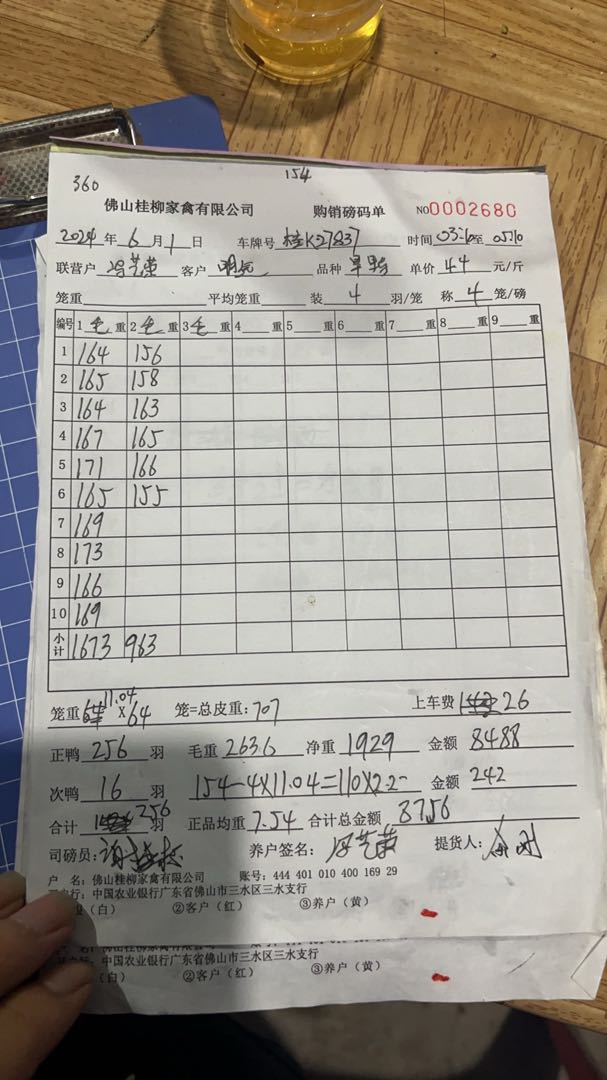 360 154
佛山桂柳家禽有限公司 购销磅码单 NO0002680
2024年6月1日 车牌号 桂K27837 时间 至 0510
联营户 冯芝荣 客户 品种 单价 4.4 元/斤
笼重 平均笼重 装 4 羽/笼 称 4 笼/磅
编号 1 毛 重 2 毛 重 3 毛 重 4 重 5 重 6 重 7 重 8 重 9 重
1 164 156
2 165 158
3 164 163
4 167 165
5 171 166
6 165 155
7 169
8 173
9 166
10 169
小计 1673 963
笼重 11.04 X 64 笼=总皮重:707 上车费 26
正鸭 256 羽 毛重 2636 净重 1929 金额 8488
次鸭 16 羽 154-4X11.04=110X2.2 金额 242
合计 256 羽 正品均重 7.54 合计总金额 8756
司磅员: 养户签名:冯芝荣 提货人:
户 名:佛山桂柳家禽有限公司 账号:444 401 010 400 169 29
户行:中国农业银行广东省佛山市三水区三水支行
(白) ②客户(红) ③养户(黄)
户行:中国农业银行广东省佛山市三水区三水支行
(白) ②客户(红) ③养户(黄)